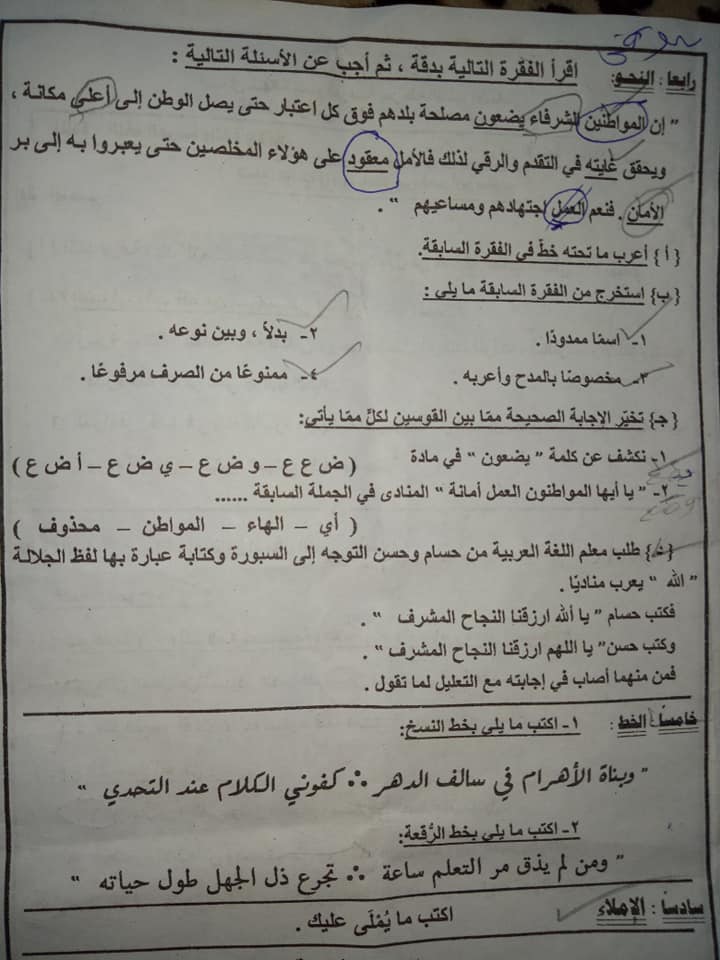 رابعا : النحو: اقرأ الفقرة التالية بدقة ، ثم أجب عن الأسئلة التالية :
" إن المواطنين الشرفاء يضعون مصلحة بلدهم فوق كل اعتبار حتى يصل الوطن إلى أعلي مكانة ،
ويحقق غايته في التقدم والرقي لذلك فالأمل معقود على هؤلاء المخلصين حتى يعبروا به إلى بر
الأمان . فنعم العمل اجتهادهم ومساعيهم " .
{ أ } أعرب ما تحته خطّ في الفقرة السابقة.
{ب} إستخرج من الفقرة السابقة ما يلي :
١- اسمًا ممدودًا. ٢- بدلاً ، وبين نوعه .
٣- مخصوصًا بالمدح وأعربه . ٤- ممنوعًا من الصرف مرفوعًا .
{ ج} تخيّر الإجابة الصحيحة ممّا بين القوسين لكلّ ممّا يأتي:
١- نكشف عن كلمة " يضعون " في مادة ( ض ع ع – و ض ع – ي ض ع – أ ض ع )
٢- " يا أيها المواطنون العمل أمانة " المنادى في الجملة السابقة ......
( أي – الهاء – المواطن – محذوف )
{ د} طلب معلم اللغة العربية من حسام وحسن التوجه إلى السبورة وكتابة عبارة بها لفظ الجلالة
" الله " يعرب مناديًا .
فكتب حسام " يا ألله ارزقنا النجاح المشرف " .
وكتب حسن" يا اللهم ارزقنا النجاح المشرف " .
فمن منهما أصاب في إجابته مع التعليل لما تقول .
خامسًا الخط : ١- اكتب ما يلي بخط النسخ:
" وبناة الأهرام في سالف الدهر ∴ كفوني الكلام عند التحدي "
٢- اكتب ما يلي بخط الرُّقعة:
" ومن لم يذق مر التعلم ساعة ∴ تجرع ذل الجهل طول حياته "
سادسًا : الإملاء اكتب ما يُمْلَى عليك .